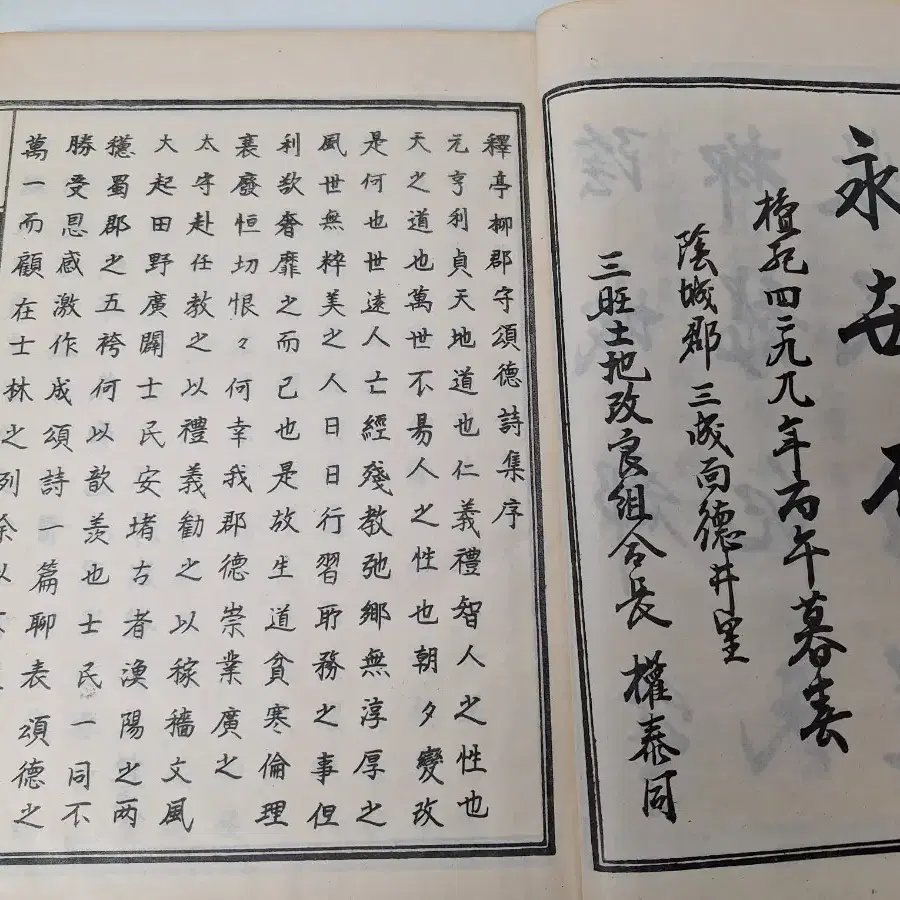 永世
檀紀四二九九年丙午暮春
陰城郡三成面德井里
三旺土地改良組合長 權泰同
釋亭柳郡守頌德詩集序
元亨利貞天地道也仁義禮智人之性也
天之道也萬世不易人之性也朝夕變改
是何也世遠人亡經殘教弛鄉無淳厚之
風世無粹美之人日日行習所務之事但
利欲奢靡之而已也是故生道貧寒倫理
襄廢恒切恨々何幸我郡德崇業廣之
太守赴任教之以禮義勸之以稼穡文風
大起田野廣闢士民安堵古者漁陽之两
穗蜀郡之五袴何以歆羡也士民一同不
勝受恩感激作成頌詩一篇聊表頌德之
萬一而顧在士林之列余以